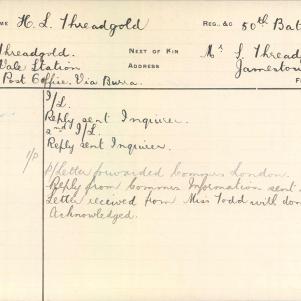 ME H. L. Threadgold REG., &C 50th Bat
Threadgold. NEXT OF KIN Mr. S Thread
Vale Station ADDRESS Jamestow
Post Office. Via Burra.
I/L.
Reply sent Inquirer.
2nd I/L.
1/P Reply sent Inquirer.
P/Letter forwarded Commrs London.
Reply from Commrs Information sent
Letter received from Miss Todd with don
Acknowledged.